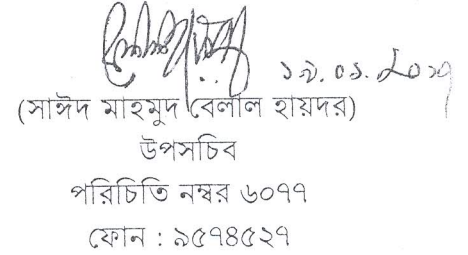 ১৯.০১.২০১৭
(সাঈদ মাহমুদ বেলাল হায়দর)
উপসচিব
পরিচিতি নম্বর ৬০৭৭
ফোন : ৯৫৭৪৫২৭